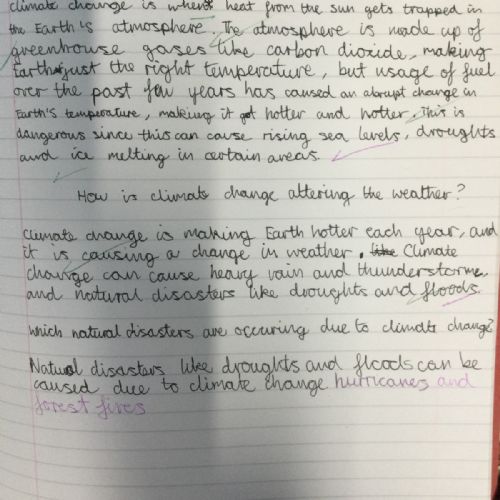 climate change is when heat from the sun gets trapped in
the Earth's atmosphere. The atmosphere is made up of
greenhouse gases like carbon dioxide, making
Earth just the right temperature, but usage of fuel
over the past few years has caused an abrupt change in
Earth's temperature, making it get hotter and hotter. This is
dangerous since this can cause rising sea levels, droughts
and ice melting in certain areas.
How is climate change altering the weather?
Climate change is making Earth hotter each year, and
it is causing a change in weather. like Climate
change can cause heavy rain and thunderstorms,
and natural disasters like droughts and floods.
which natural disasters are occuring due to climate change?
Natural disasters like droughts and floods can be
caused due to climate change hurricanes and
forest fires